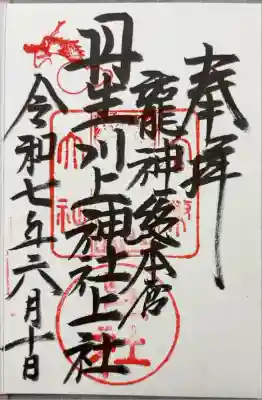 奉拝
龍神総本宮
丹生川上神社上社
令和七年六月十日